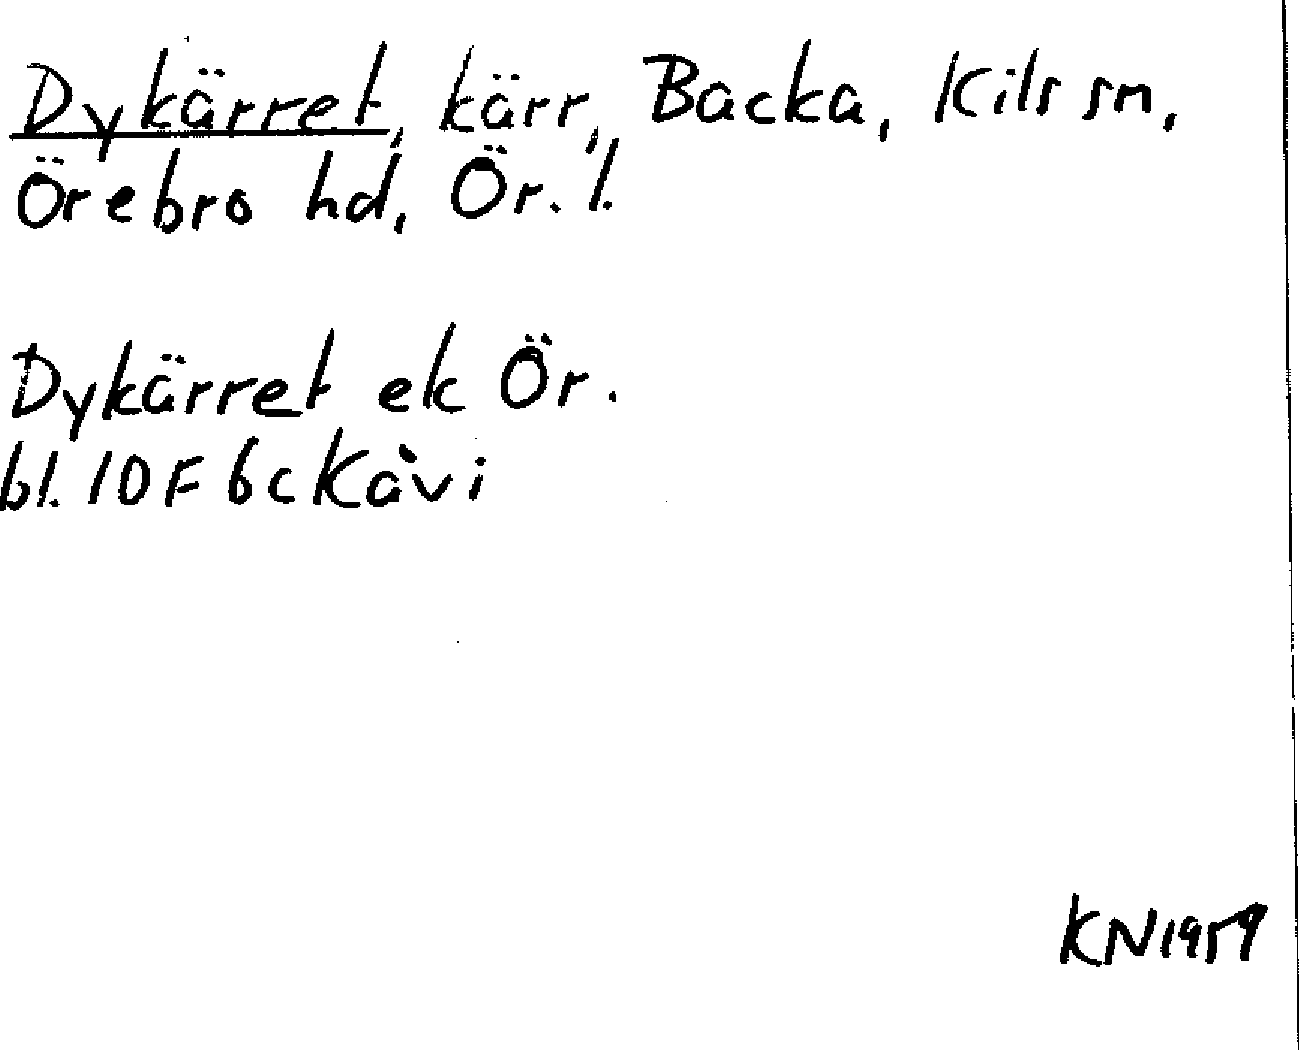 Dykärret, kärr, Backa, Kils sn,
Örebro hd, Ör. l.
Dykärret ek Ör.
bl. 10F 6c Kåvi
KN1959